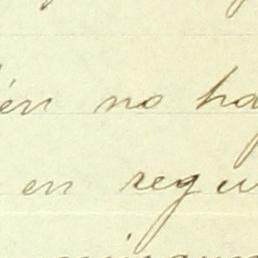 én no ha
en regu